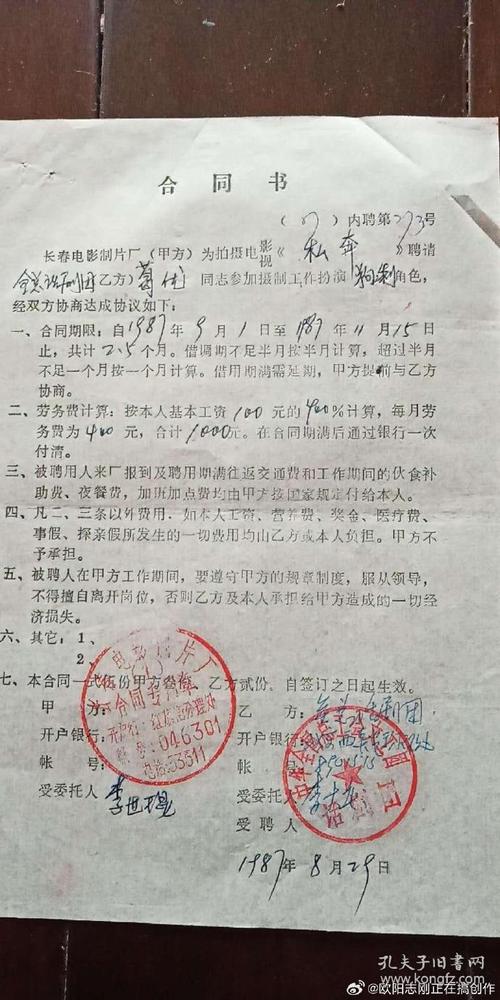 合同书
(87)内聘第273号
长春电影制片厂(甲方)为拍摄电影视《私奔》聘请
全总话剧团(乙方)葛优同志参加摄制工作扮演 角色,
经双方协商达成协议如下:
一、合同期限:自1987年9月1日至1987年11月15日
止,共计2.5个月。借调期不足半月按半月计算,超过半月
不足一个月按一个月计算。借用期满需延期,甲方提前与乙方
协商。
二、劳务费计算:按本人基本工资100元的400%计算,每月劳
务费为400元,合计1000元。在合同期满后通过银行一次
付清。
三、被聘用人来厂报到及聘用期满往返交通费和工作期间的伙食补
助费、夜餐费,加班加点费均由甲方按国家规定付给本人。
四、凡二、三条以外费用,如本人工资、营养费、奖金、医疗费、
事假、探亲假所发生的一切费用均由乙方或本人负担。甲方不
予承担。
五、被聘人在甲方工作期间,要遵守甲方的规章制度,服从领导,
不得擅自离开岗位,否则乙方及本人承担给甲方造成的一切经
济损失。
六、其它:1、
2、
七、本合同一式伍份甲方叁份,乙方贰份,自签订之日起生效。
甲方: 乙方:全总话剧团
开户银行: 开户银行:
帐号: 帐号:
受委托人 李世 受委托人 李
受聘人
1987年8月29日
电影制片厂
合同专用章
开户行:红旗街分理处
帐号:046301
电话:53311
中华全国总工会文工团
话剧团
孔夫子旧书网
kongfz.com
@欧阳志刚正在搞创作